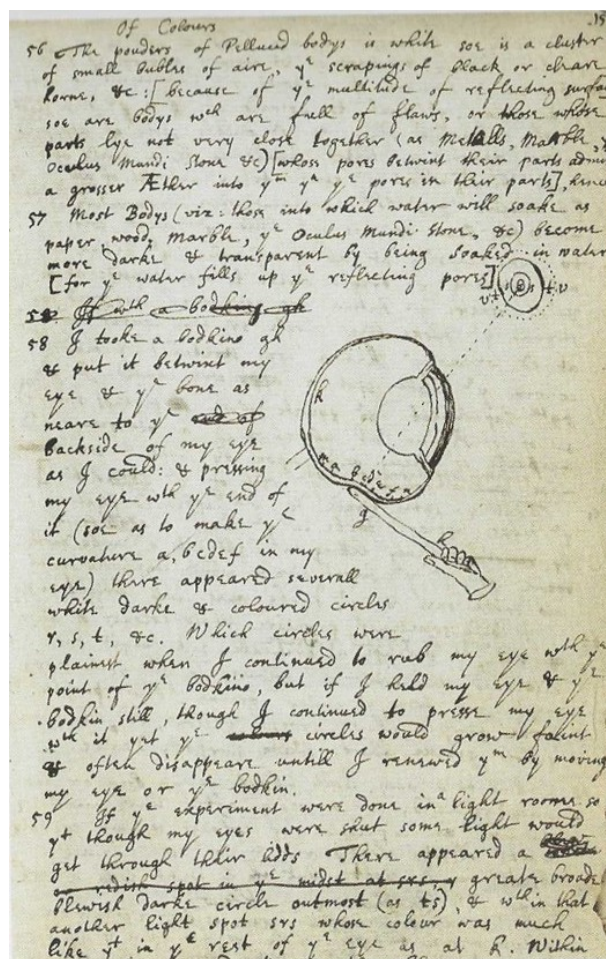 Of Colours
15
56 The pouders of Pellucid bodys is white soe is a cluster
of small bubles of aire, yᵉ scrapings of black or cleare
horne, &c: [because of yᵉ multitude of reflecting surfa
soe are bodys wᶜʰ are full of flaws, or those whose
parts lye not very close together (as Metalls, Marble,
Oculus Mundi Stone &c) [whose pores betwixt their parts admi
a grosser Æther into yᵐ yⁿ yᵉ pores in their parts], hence
57 Most Bodys (viz: those into which water will soake as
paper, wood, Marble, yᵉ Oculus Mundi Stone, &c) become
more darke & transparent by being soaked in water
[for yᵉ water fills up yᵉ reflecting pores]
58 If wᵗʰ a bodking gh
58 I tooke a bodkine gh
& put it betwixt my
eye & yᵉ bone as
neare to yᵉ end of
backside of my eye
as I could: & pressing
my eye wᵗʰ yᵉ end of
it (soe as to make yᵉ
curvature a, bcdef in my
eye) there appeared severall
white darke & coloured circles
r, s, t, &c. Which circles were
plainest when I continued to rub my eye wᵗʰ yᵉ
point of yᵉ bodkine, but if I held my eye & yᵉ
bodkin still, though I continued to presse my eye
wᵗʰ it yet yᵉ circles would grow faint
& often disappeare untill I renewed yᵐ by moving
my eye or yᵉ bodkin.
59 If yᵉ experiment were done in a light roome so
yᵗ though my eyes were shut some light would
get through their lidds There appeared a
redish spot in yᵉ midst at srs greate broade
blewish darke circle outmost (as ts), & wᵗʰin that
another light spot srs whose colour was much
like yᵗ in yᵉ rest of yᵉ eye as at k. Within
k
g
h